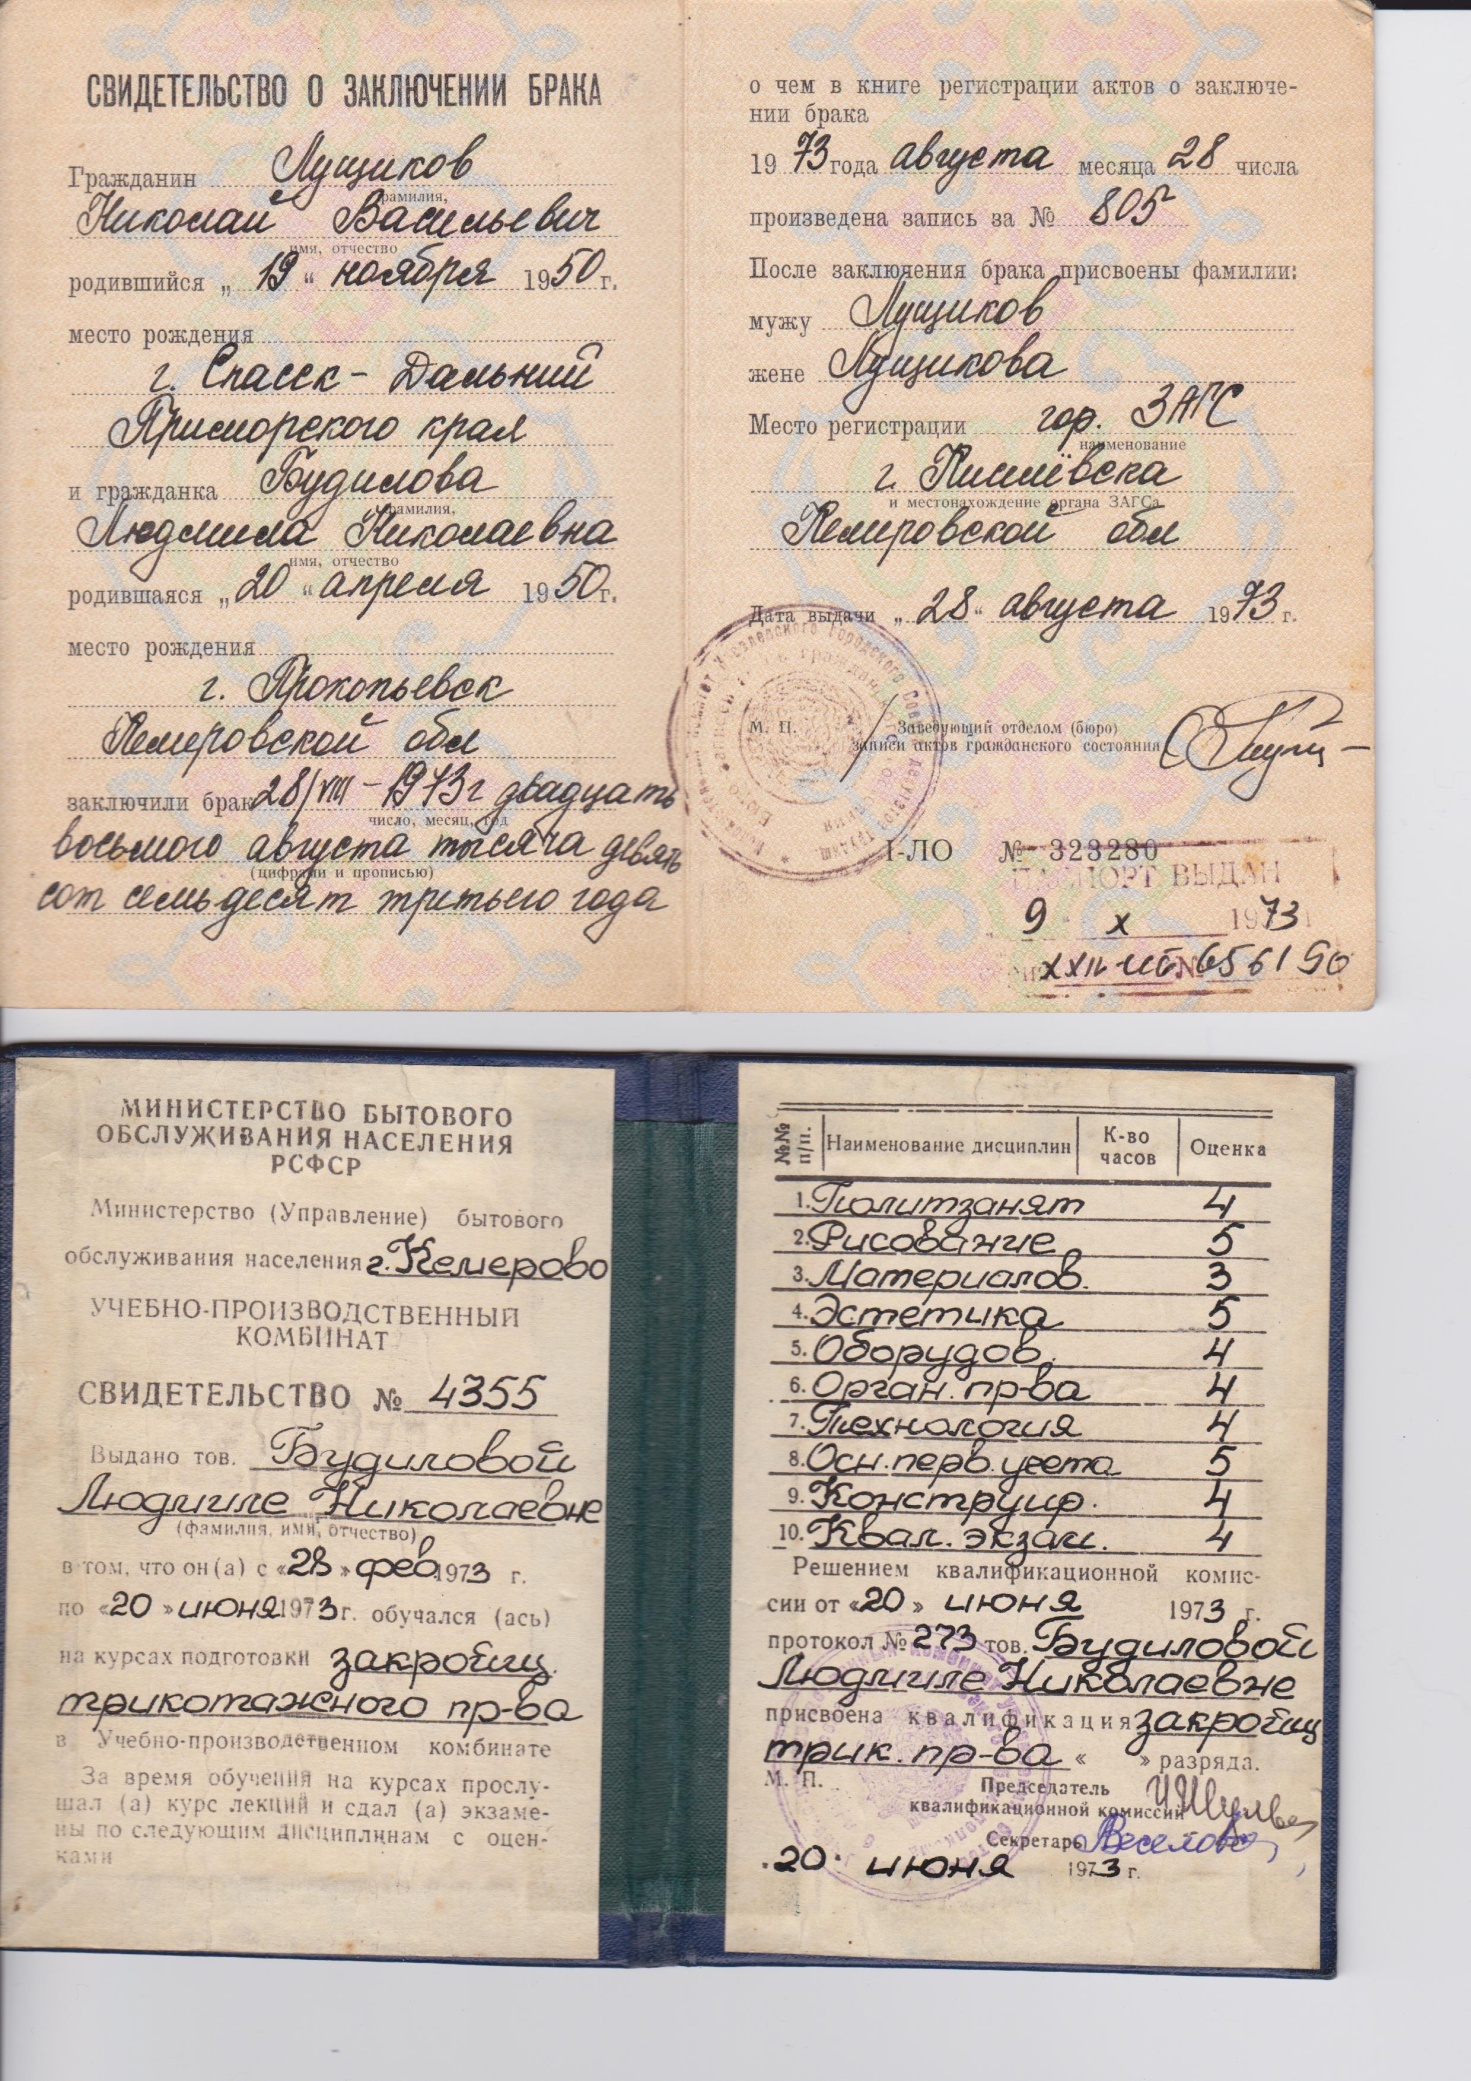 СВИДЕТЕЛЬСТВО О ЗАКЛЮЧЕНИИ БРАКА
Гражданин Лущиков
фамилия,
Николай Васильевич
имя, отчество
родившийся „ 19 “ ноября 1950 г.
место рождения
г. Спасск-Дальний
Приморского края
и гражданка Будилова
фамилия,
Людмила Николаевна
имя, отчество
родившаяся „ 20 “ апреля 1950 г.
место рождения
г. Прокопьевск
Кемеровской обл
заключили брак 28/VIII-1973 г двадцать
число, месяц, год
восьмого августа тысяча девять
(цифрами и прописью)
сот семьдесят третьего года
о чем в книге регистрации актов о заключе-
нии брака
19 73 года августа месяца 28 числа
произведена запись за № 805
После заключения брака присвоены фамилии:
мужу Лущиков
жене Лущикова
Место регистрации гор. ЗАГС
наименование
г. Киселёвска
и местонахождение органа ЗАГСа
Кемеровской обл
Дата выдачи „ 28 “ августа 1973 г.
М. П. Заведующий отделом (бюро)
записи актов гражданского состояния
I-ЛО № 323280
ПАСПОРТ ВЫДАН
9 X 1973
№ 656190
МИНИСТЕРСТВО БЫТОВОГО
ОБСЛУЖИВАНИЯ НАСЕЛЕНИЯ
РСФСР
Министерство (Управление) бытового
обслуживания населения г. Кемерово
УЧЕБНО-ПРОИЗВОДСТВЕННЫЙ
КОМБИНАТ
СВИДЕТЕЛЬСТВО № 4355
Выдано тов. Будиловой
Людмиле Николаевне
(фамилия, имя, отчество)
в том, что он(а) с «28» фев 1973 г.
по «20» июня 1973 г. обучался (ась)
на курсах подготовки закройщ.
трикотажного пр-ва
в Учебно-производственном комбинате
За время обучения на курсах прослу-
шал (а) курс лекций и сдал (а) экзаме-
ны по следующим дисциплинам с оцен-
ками
№№ п/п. Наименование дисциплин К-во часов Оценка
1. Политзанят 4
2. Рисование 5
3. Материалов. 3
4. Эстетика 5
5. Оборудов. 4
6. Орган. пр-ва 4
7. Технология 4
8. Осн. перв. учета 5
9. Конструир. 4
10. Квал. экзам. 4
Решением квалификационной комис-
сии от «20» июня 1973 г.
протокол № 273 тов. Будиловой
Людмиле Николаевне
присвоена квалификация закройщ
трик. пр-ва « » разряда.
М. П. Председатель
квалификационной комиссии
Секретарь
20 июня 1973 г.